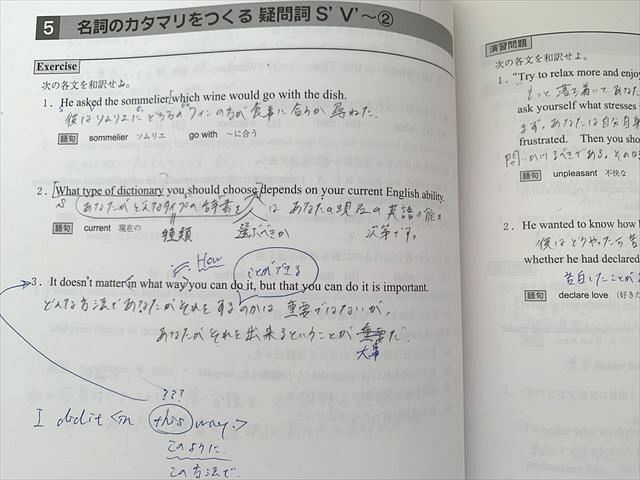 5 名詞のカタマリをつくる 疑問詞 S' V' ～②
Exercise
次の各文を和訳せよ。
1. He asked the sommelier [which wine would go with the dish.
S V O
彼はソムリエにどちらのワインの方が食事に合うか尋ねた。
語句 sommelier ソムリエ go with ～に合う
2. [What type of dictionary you should choose] depends on your current English ability.
S
あなたがどんなタイプの辞書を 入 は あなたの現在の英語の能力
語句 current 現在の
種類 選ぶべきか 次第です。
How
ことができる
3. It doesn't matter in what way you can do it, but that you can do it is important.
どんな方法であなたがそれをするのかは 重要ではないが、
あなたがそれを出来るということが 重要だ
大事
???
I did it <in this way.>
このように
この方法で.
演習問題
次の各文を和訳せよ。
1. "Try to relax more and enjoy
もっと落ち着いてあなた
ask yourself what stresses
まず、あなたは自分自身
frustrated. Then you shou
問いかけるべきである。その
語句 unpleasant 不快な
2. He wanted to know how
彼はどうやったら
whether he had declared
告白したことが
語句 declare love (好きだ